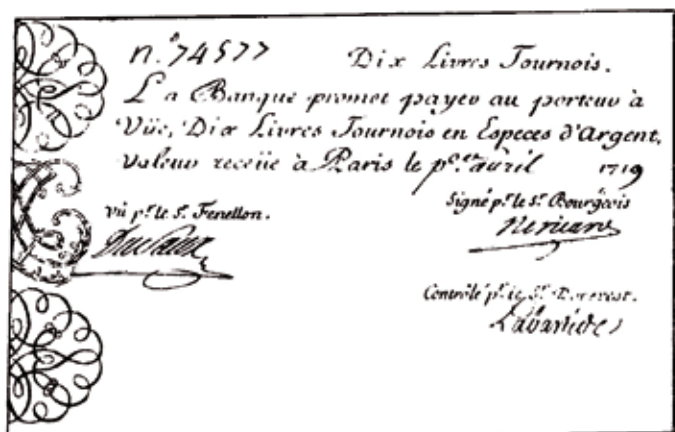 n.º 74577 Dix Livres Tournois.
La Banque promet payer au porteur à
Vüe, Dix Livres Tournois en Especes d'Argent,
valeur receüe à Paris le p.er auril 1719
vû p.r le S.r Fenellon.
Signé p.r le S.r Bourgeois
Contrôlé p.r le S.r Durevest.